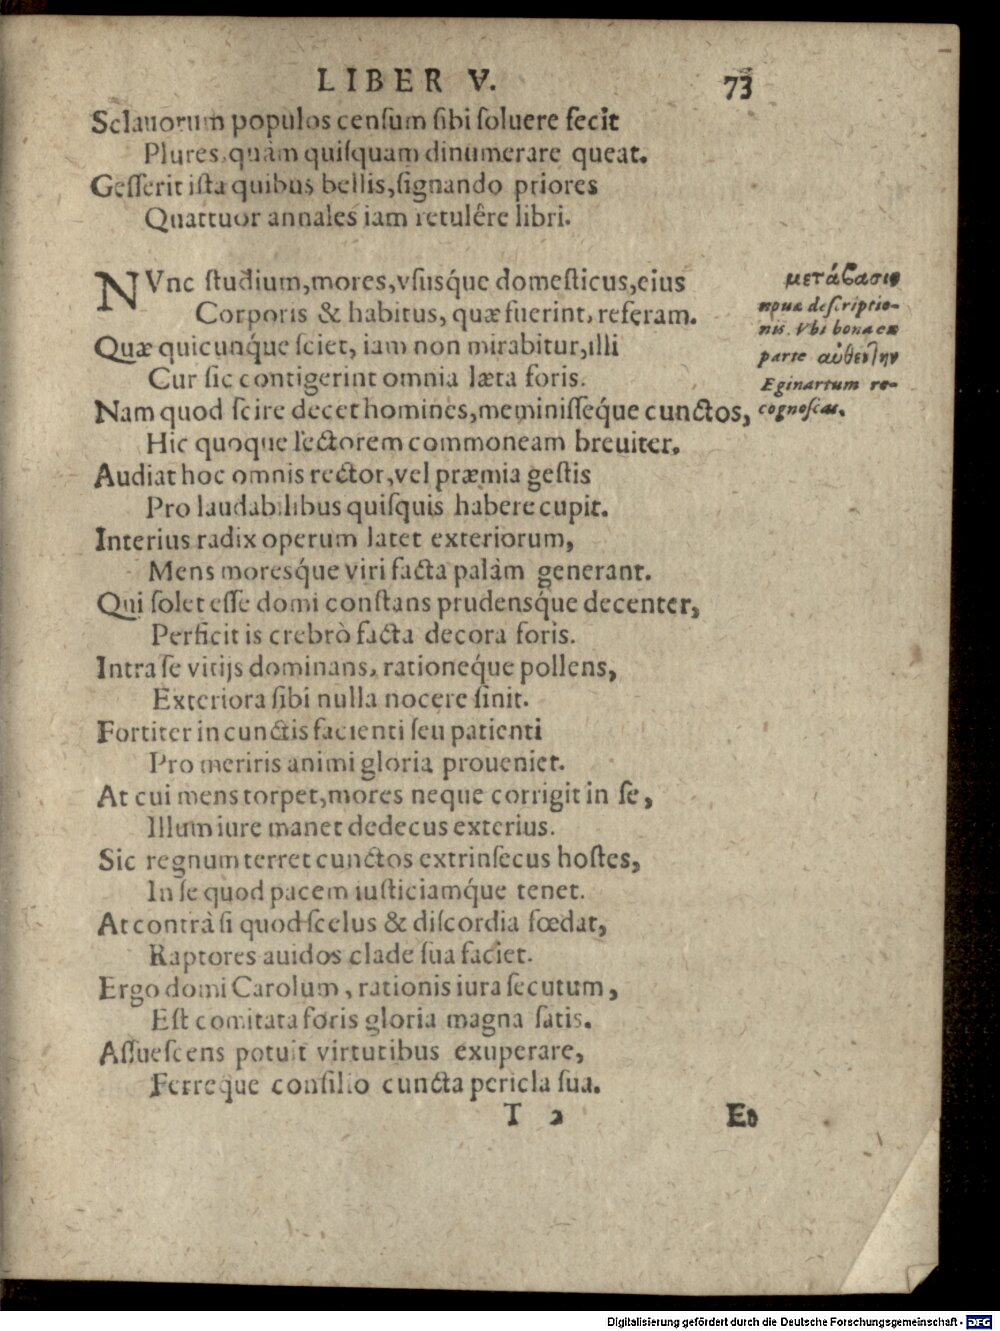 LIBER V. 73
Sclauorum populos censum sibi soluere fecit
Plures, quàm quisquam dinumerare queat.
Gesserit ista quibus bellis, signando priores
Quattuor annales iam retulêre libri.
NVnc studium, mores, vsusq́ue domesticus, eius
Corporis & habitus, quæ fuerint, referam.
Quæ quicunq́ue sciet, iam non mirabitur, illi
Cur sic contigerint omnia læta foris.
Nam quod scire decet homines, meminisseq́ue cunctos,
Hic quoque lectorem commoneam breuiter.
Audiat hoc omnis rector, vel præmia gestis
Pro laudabilibus quisquis habere cupit.
Interius radix operum latet exteriorum,
Mens moresq́ue viri facta palàm generant.
Qui solet esse domi constans prudensq́ue decenter,
Perficit is crebrò facta decora foris.
Intra se vitijs dominans, rationeq́ue pollens,
Exteriora sibi nulla nocere sinit.
Fortiter in cunctis facienti seu patienti
Pro meriris animi gloria proueniet.
At cui mens torpet, mores neque corrigit in se,
Illum iure manet dedecus exterius.
Sic regnum terret cunctos extrinsecus hostes,
In se quod pacem iusticiamq́ue tenet.
At contrà si quod scelus & discordia fœdat,
Raptores auidos clade sua faciet.
Ergo domi Carolum, rationis iura secutum,
Est comitata foris gloria magna satis.
Assuescens potuit virtutibus exuperare,
Ferreque consilio cuncta pericla sua.
T 2 Eo
μετάβασις
descriptio-
nis. Vbi bona ex
parte
Eginartum re-
cognoscas.
Digitalisierung gefördert durch die Deutsche Forschungsgemeinschaft - DFG